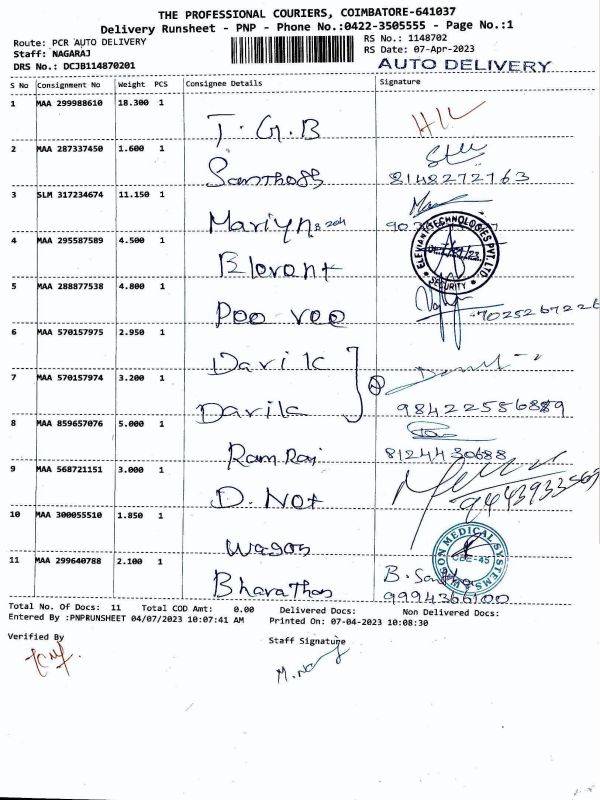 THE PROFESSIONAL COURIERS, COIMBATORE-641037
Delivery Runsheet - PNP - Phone No.:0422-3505555 - Page No.:1
Route: PCR AUTO DELIVERY
RS No.: 1148702
Staff: NAGARAJ
RS Date: 07-Apr-2023
DRS No.: DCJB114870201
AUTO DELIVERY
S No Consignment No Weight PCS Consignee Details Signature
1 MAA 299988610 18.300 1
T.G.B
2 MAA 287337450 1.600 1
Santhosh 8148272763
3 SLM 317234674 11.150 1
4 MAA 295587589 4.500 1
ELEVIANT TECHNOLOGIES PVT. LTD. SECURITY
5 MAA 288877538 4.800 1
Poo vee 7025267226
6 MAA 570157975 2.950 1
Davik
7 MAA 570157974 3.200 1
Davik
8 MAA 859657076 5.000 1
Ram Raj 8124430688
9 MAA 568721151 3.000 1
D. Not
10 MAA 300055510 1.850 1
WATSON MEDICAL SYSTEMS CBE-45
11 MAA 299640788 2.100 1
Bharathan 9994366100
Total No. Of Docs: 11 Total COD Amt: 0.00 Delivered Docs: Non Delivered Docs:
Entered By :PNPRUNSHEET 04/07/2023 10:07:41 AM Printed On: 07-04-2023 10:08:30
Verified By
Staff Signature